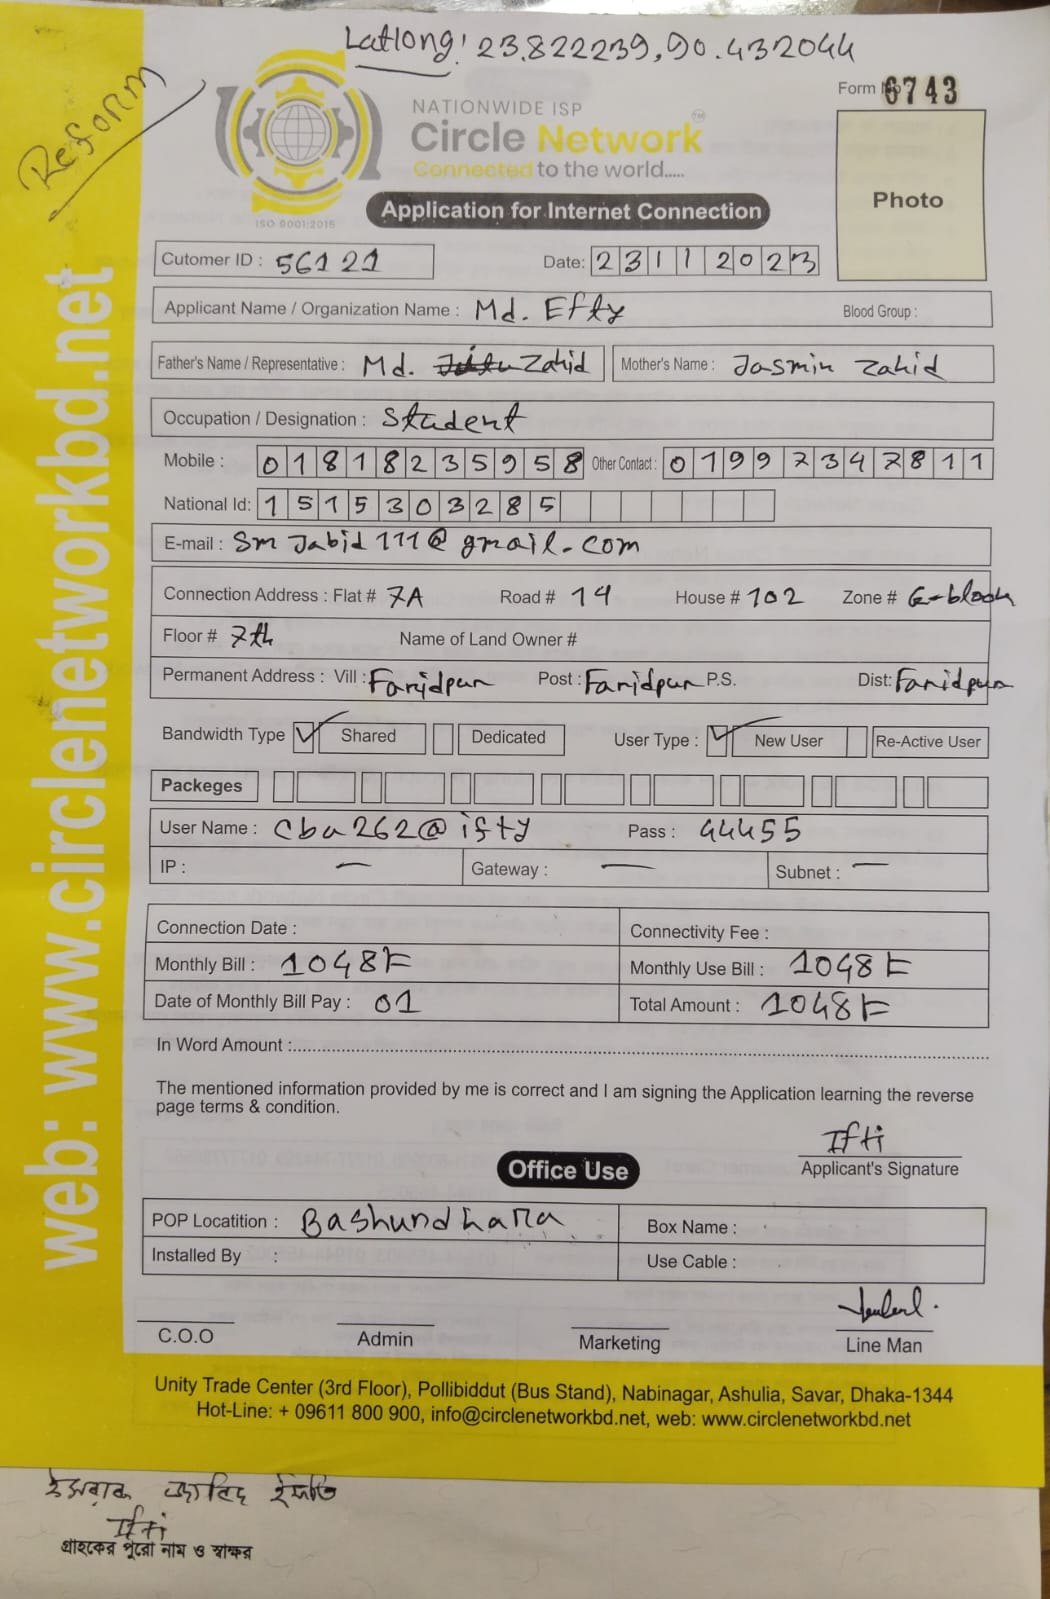 Latlong: 23.822239, 90.432044
Reform
Form No 6743
NATIONWIDE ISP
Circle Network TM
Connected to the world.....
ISO 9001:2015
Photo
Application for Internet Connection
Cutomer ID : 56121 Date: 23112023
Applicant Name / Organization Name : Md. Efty Blood Group :
Father's Name / Representative : Md. Zahid Mother's Name : Jasmin Zahid
Occupation / Designation : Student
Mobile : 01818235958 Other Contact : 01997347811
National Id: 1515303285
E-mail : Sm Jabid 111@gmail.com
Connection Address : Flat # 7A Road # 14 House # 102 Zone # G-block
Floor # 7th Name of Land Owner #
Permanent Address : Vill : Faridpur Post : Faridpur P.S. Dist: Faridpur
Bandwidth Type Shared Dedicated User Type : New User Re-Active User
Packeges
User Name : cba262@ifty Pass : 44455
IP : — Gateway : — Subnet : —
Connection Date : Connectivity Fee :
Monthly Bill : 1048৳ Monthly Use Bill : 1048৳
Date of Monthly Bill Pay : 01 Total Amount : 1048৳
In Word Amount :
The mentioned information provided by me is correct and I am signing the Application learning the reverse
page terms & condition.
Ifti
Applicant's Signature
Office Use
POP Locatition : Bashundhara Box Name :
Installed By : Use Cable :
C.O.O Admin Marketing Line Man
Unity Trade Center (3rd Floor), Pollibiddut (Bus Stand), Nabinagar, Ashulia, Savar, Dhaka-1344
Hot-Line: + 09611 800 900, info@circlenetworkbd.net, web: www.circlenetworkbd.net
web: www.circlenetworkbd.net
ইসরাক জাবিদ ইফতি
Ifti
গ্রাহকের পুরো নাম ও স্বাক্ষর